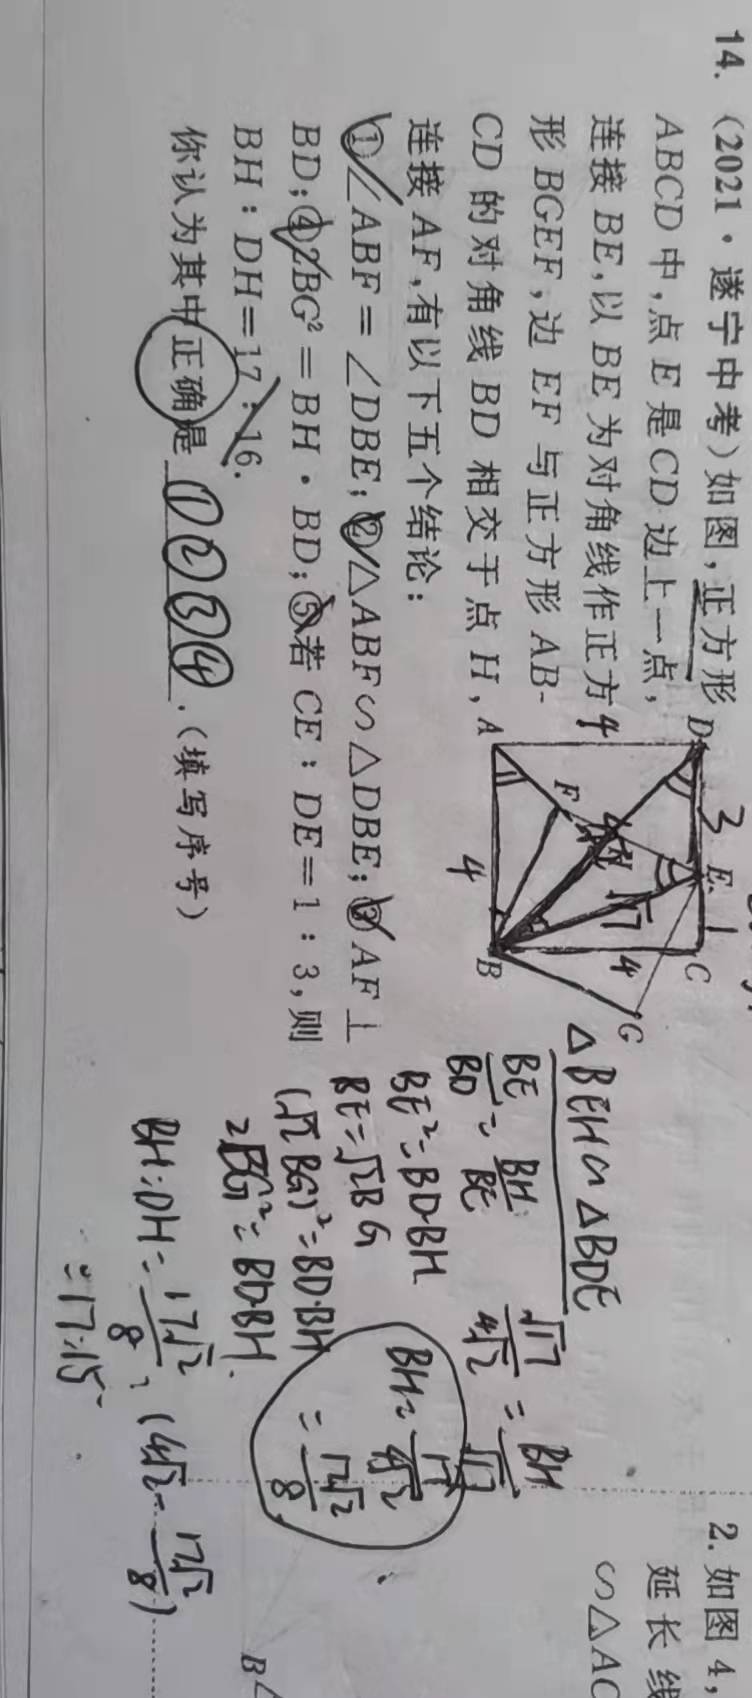 14. (2021·遂宁中考)如图,正方形
ABCD 中,点 E 是 CD 边上一点,
连接 BE,以 BE 为对角线作正方
形 BGEF,边 EF 与正方形 AB-
CD 的对角线 BD 相交于点 H,
连接 AF,有以下五个结论:
①∠ABF=∠DBE;②△ABF∽△DBE;③AF⊥
BD;④2BG²=BH·BD;⑤若 CE:DE=1:3,则
BH:DH=17:16.
你认为其中正确是 ①②③④ .(填写序号)
D 3 E 1 C
4 F H √17 4 G
A 4 B
△BEH∽△BDE
BE/BD = BH/BE
√17/4√2 = BH/√17
BE²=BD·BH
BE=√2BG
(√2BG)²=BD·BH
2BG²=BD·BH.
BH=17/4√2
=17√2/8
BH:DH=17√2/8:(4√2-17√2/8)
=17:15
2. 如图 4,
延长线
∽△AC
B